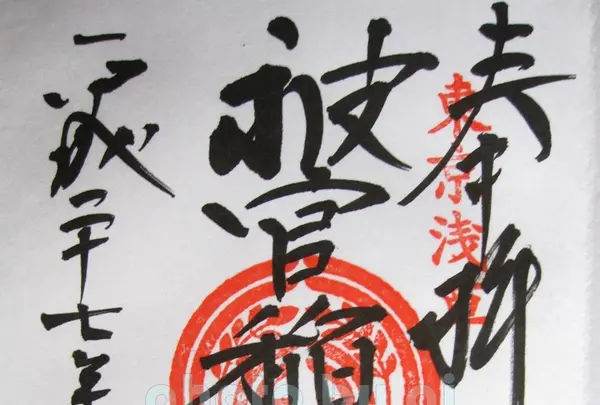 奉拝
東京浅草
被官稲
平成二十七年